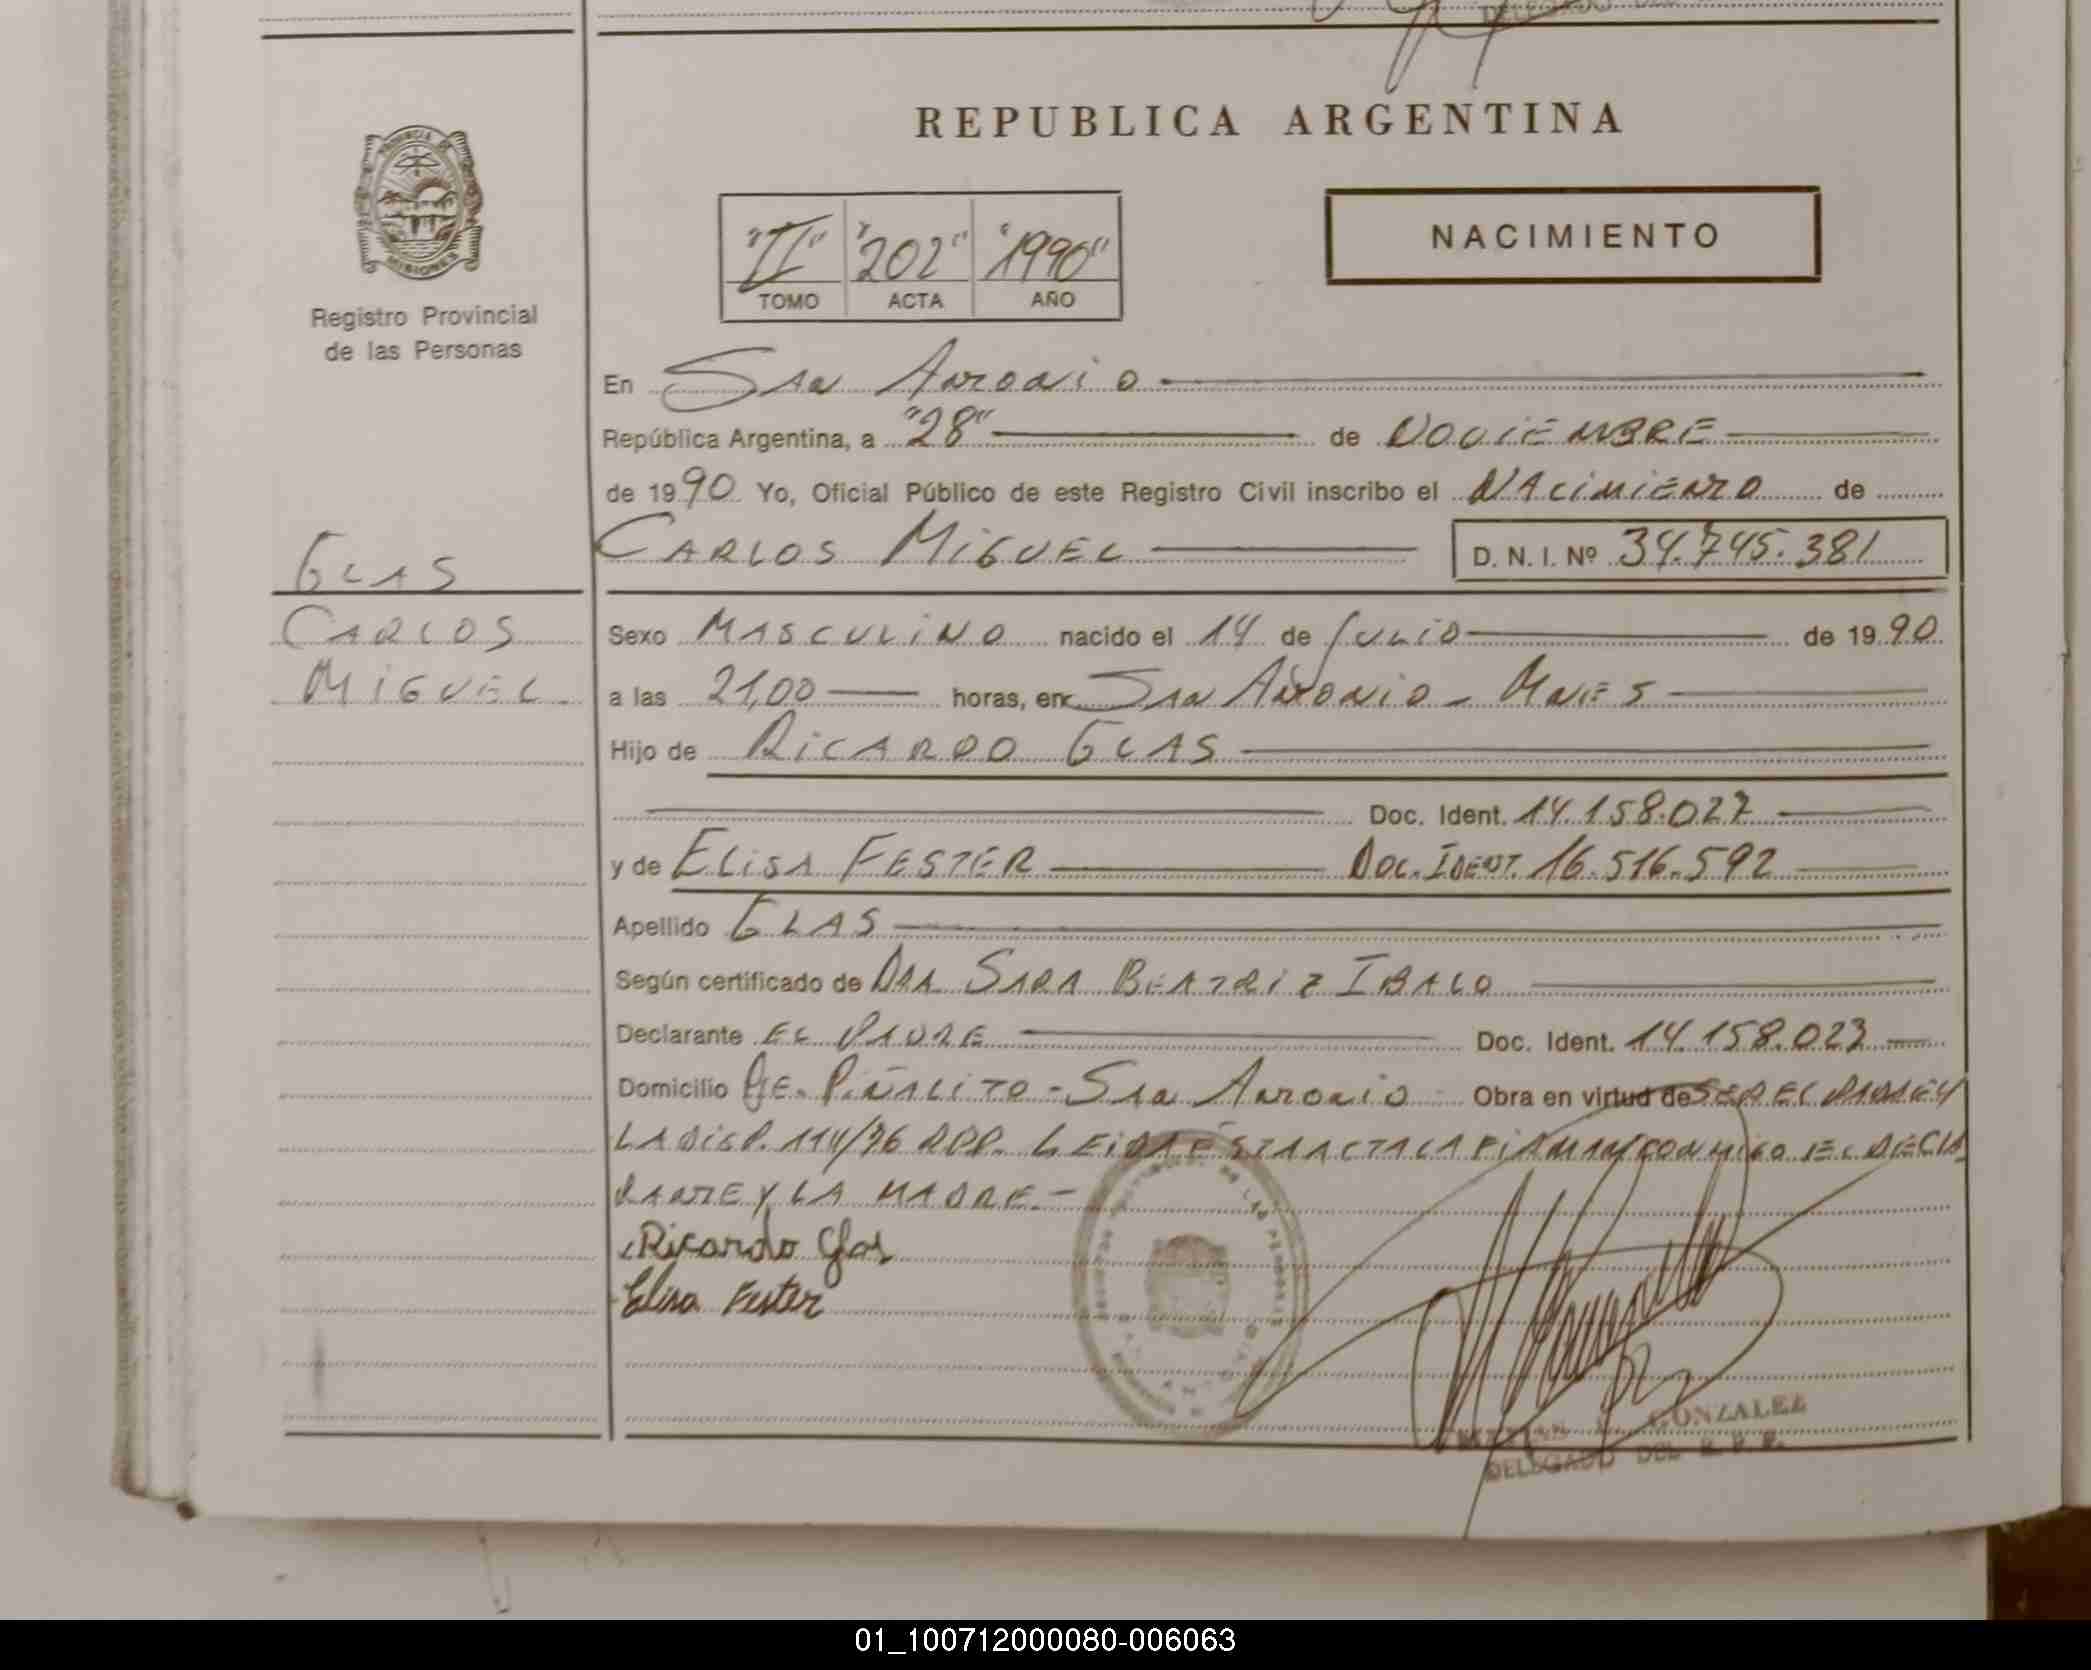 REPUBLICA ARGENTINA
PROVINCIA DE
MISIONES
Registro Provincial
de las Personas
"II" "202" "1990"
TOMO ACTA AÑO
NACIMIENTO
En San Antonio
República Argentina, a "28" de NOVIEMBRE
de 1990 Yo, Oficial Público de este Registro Civil inscribo el NACIMIENTO de
CARLOS MIGUEL D. N. I. Nº 34.745.381
GLAS
CARLOS
MIGUEL
Sexo MASCULINO nacido el 14 de JULIO de 1990
a las 21,00 horas, en San Antonio - Mnes
Hijo de RICARDO GLAS
Doc. Ident. 14.158.027
y de ELISA FESTER DOC. IDENT. 16.516.592
Apellido GLAS
Según certificado de DRA SARA BEATRIZ IBALO
Declarante EL PADRE Doc. Ident. 14.158.023
Domicilio PJE. PIÑALITO - San Antonio Obra en virtud de SER EL PADRE Y
LA DISP. 114/76 RPP. LEIDA ESTA ACTA LA FIRMAN CONMIGO EL DECLA
RANTE Y LA MADRE.-
Ricardo Glas
Elisa Fester
GONZALEZ
DELEGADO DEL R. P. P.
01_100712000080-006063